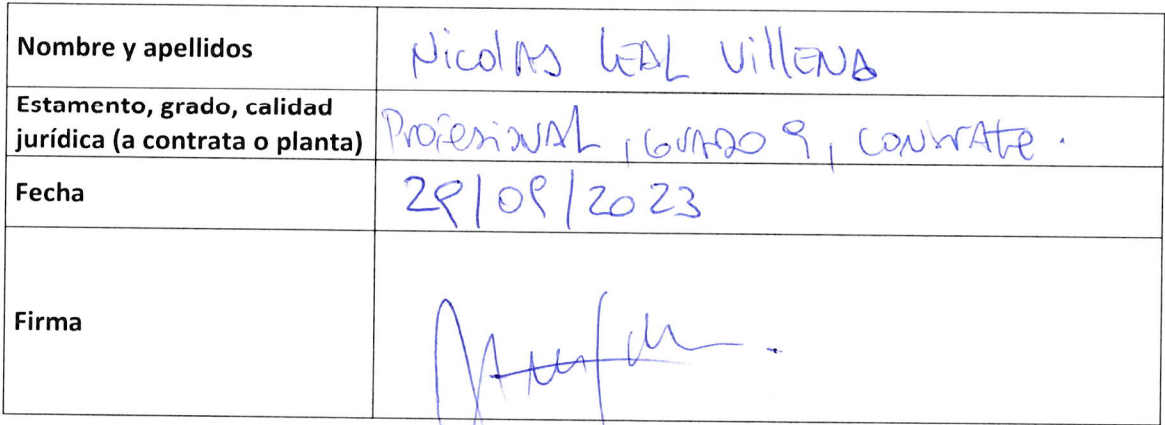 Nombre y apellidos
Nicolas LEAL VillENA
Estamento, grado, calidad
jurídica (a contrata o planta)
ProfesioNAL, GRADO 9, CONtrATA.
Fecha
29/09/2023
Firma